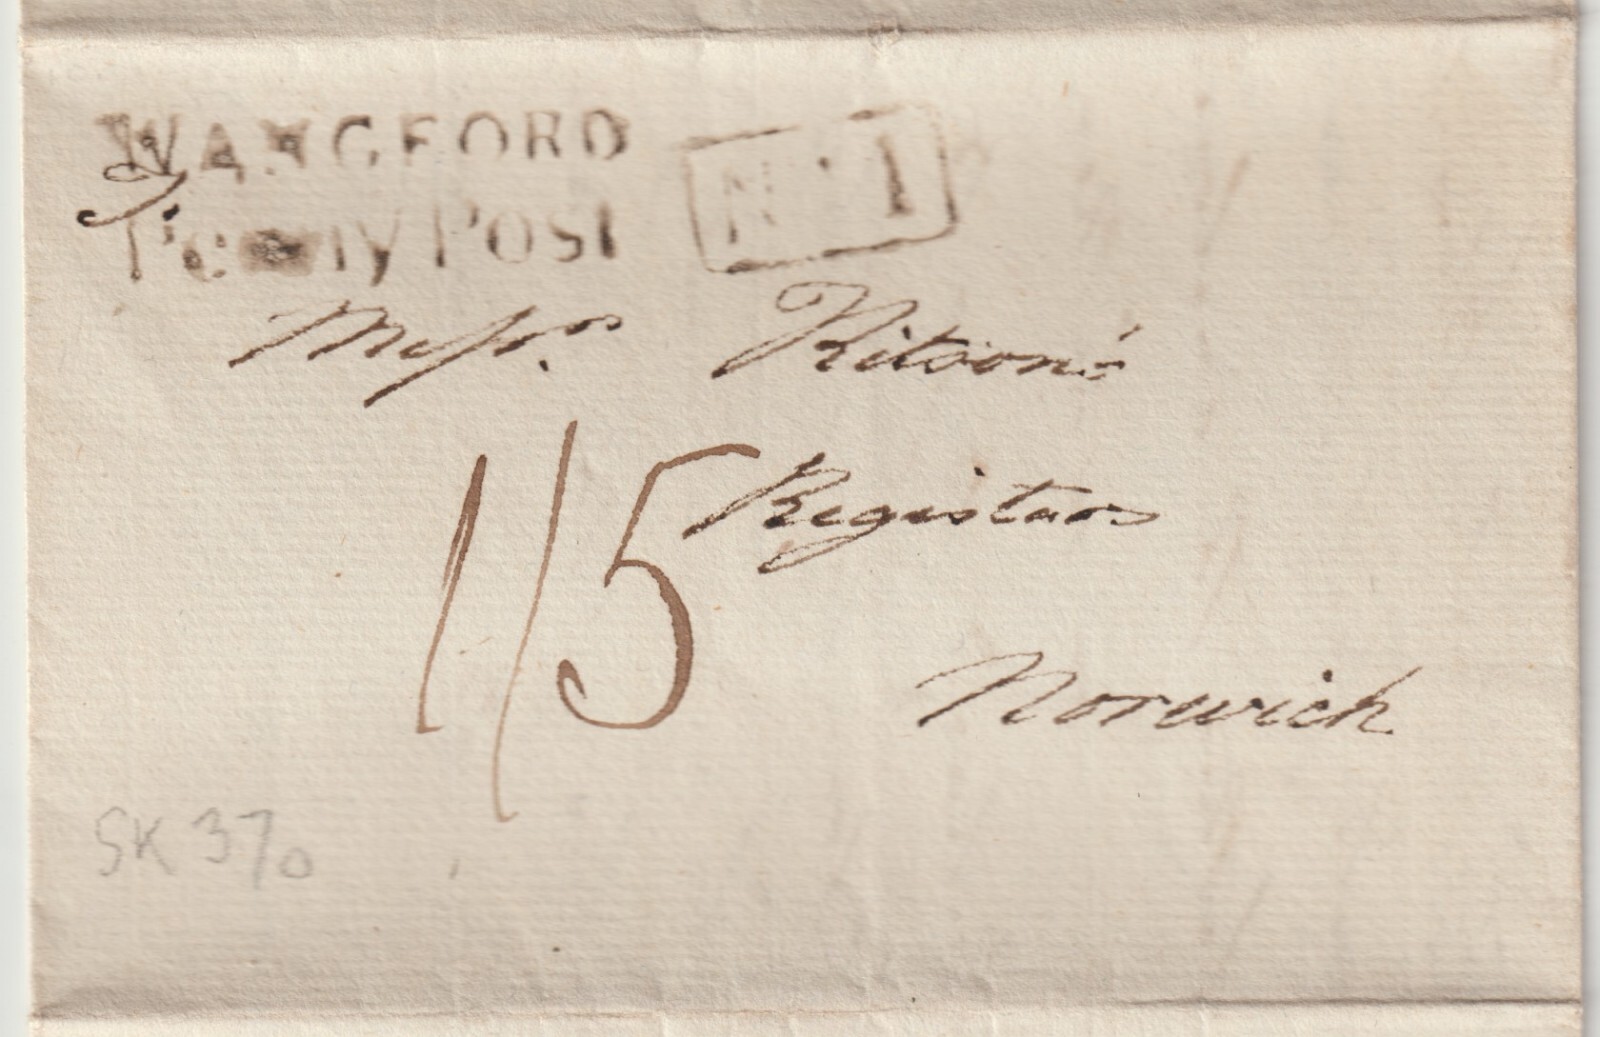 WANGFORD
Penny Post
No. 1
Messrs. Kitson's
1/5
Registrars
Norwich
SK 370